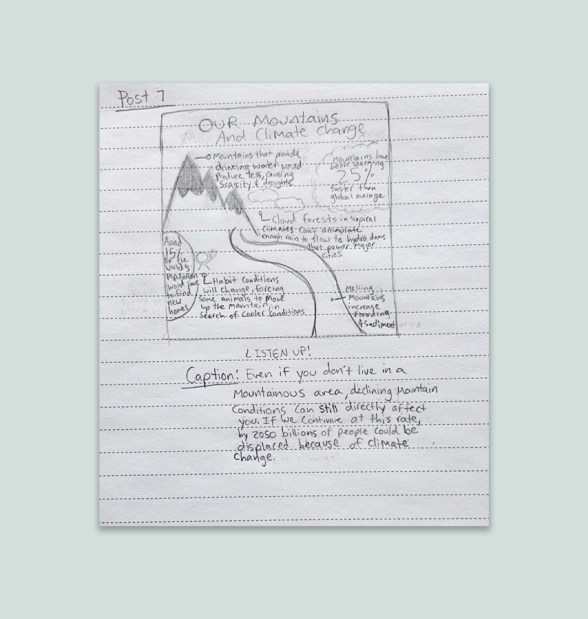 Post 7
OUR Mountains
And Climate Change
Mountains that provide
drinking water would
Produce less, causing
Scarsity & droughts
Mountains have
been warming
25%
faster than
global average
Cloud forests in tropical
climates can't accumulate
enough rain to flow to hydro dams
that power major
cities.
Around
15%
of the
world's
Population
would have
to find
new
homes
Habitat conditions
will change, forcing
some animals to move
up the mountain in
search of cooler conditions.
Melting
Mountains
increase
flooding
& sediment
LISTEN UP!
Caption: Even if you don't live in a
Mountainous area, declining mantain
Conditions can still directly affect
you. If we continue at this rate,
by 2050 billions of people could be
displaced because of climate
change.